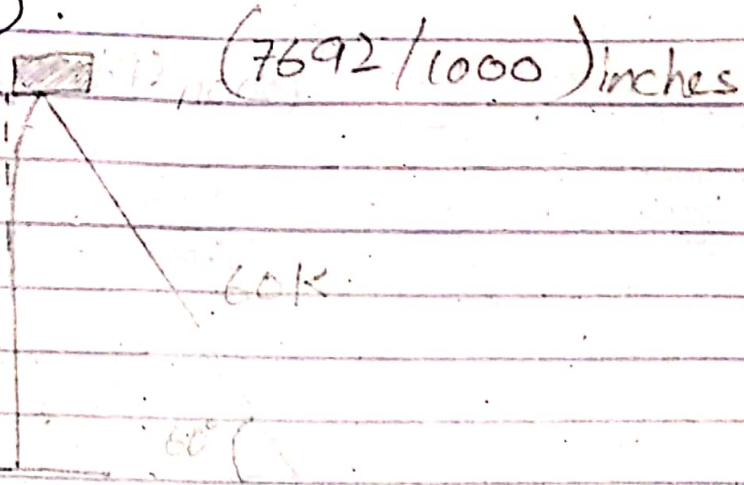 (7692/1000) inches
60K
60°